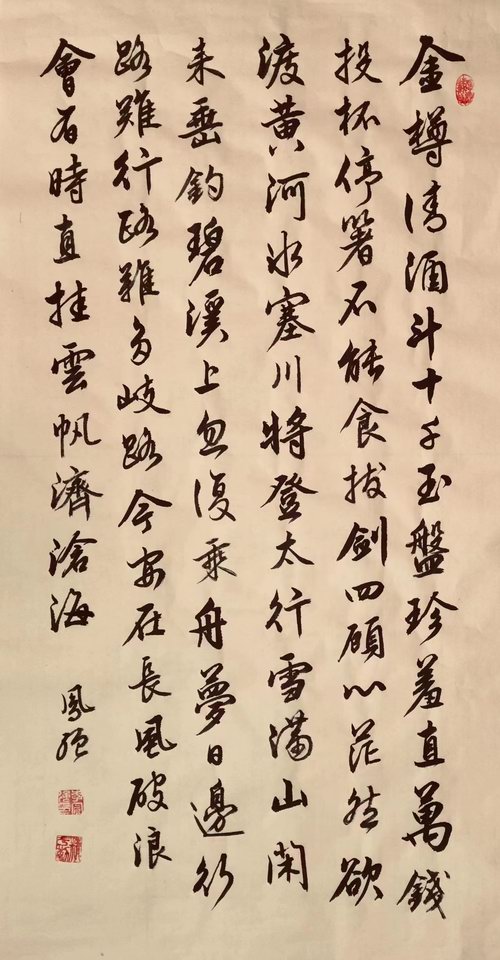 金樽清酒斗十千玉盤珍羞直萬錢
投杯停箸不能食拔劍四顧心茫然欲
渡黄河冰塞川將登太行雪滿山閑
来垂釣碧溪上忽復乘舟夢日邊行
路難行路難多岐路今安在長風破浪
會有時直挂雲帆濟滄海
鳳